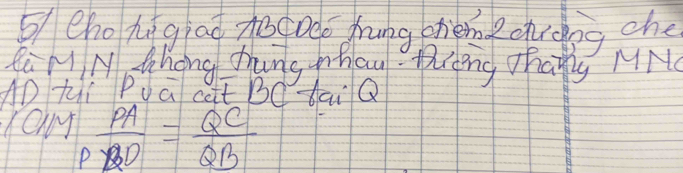 5/ Cho tứ giác ABCD có trung điểm 2 đường ché
là M, N không trùng nhau. Đường thẳng MN c
AD tại P và cắt BC tại Q
CM PA/PD = QC/QB